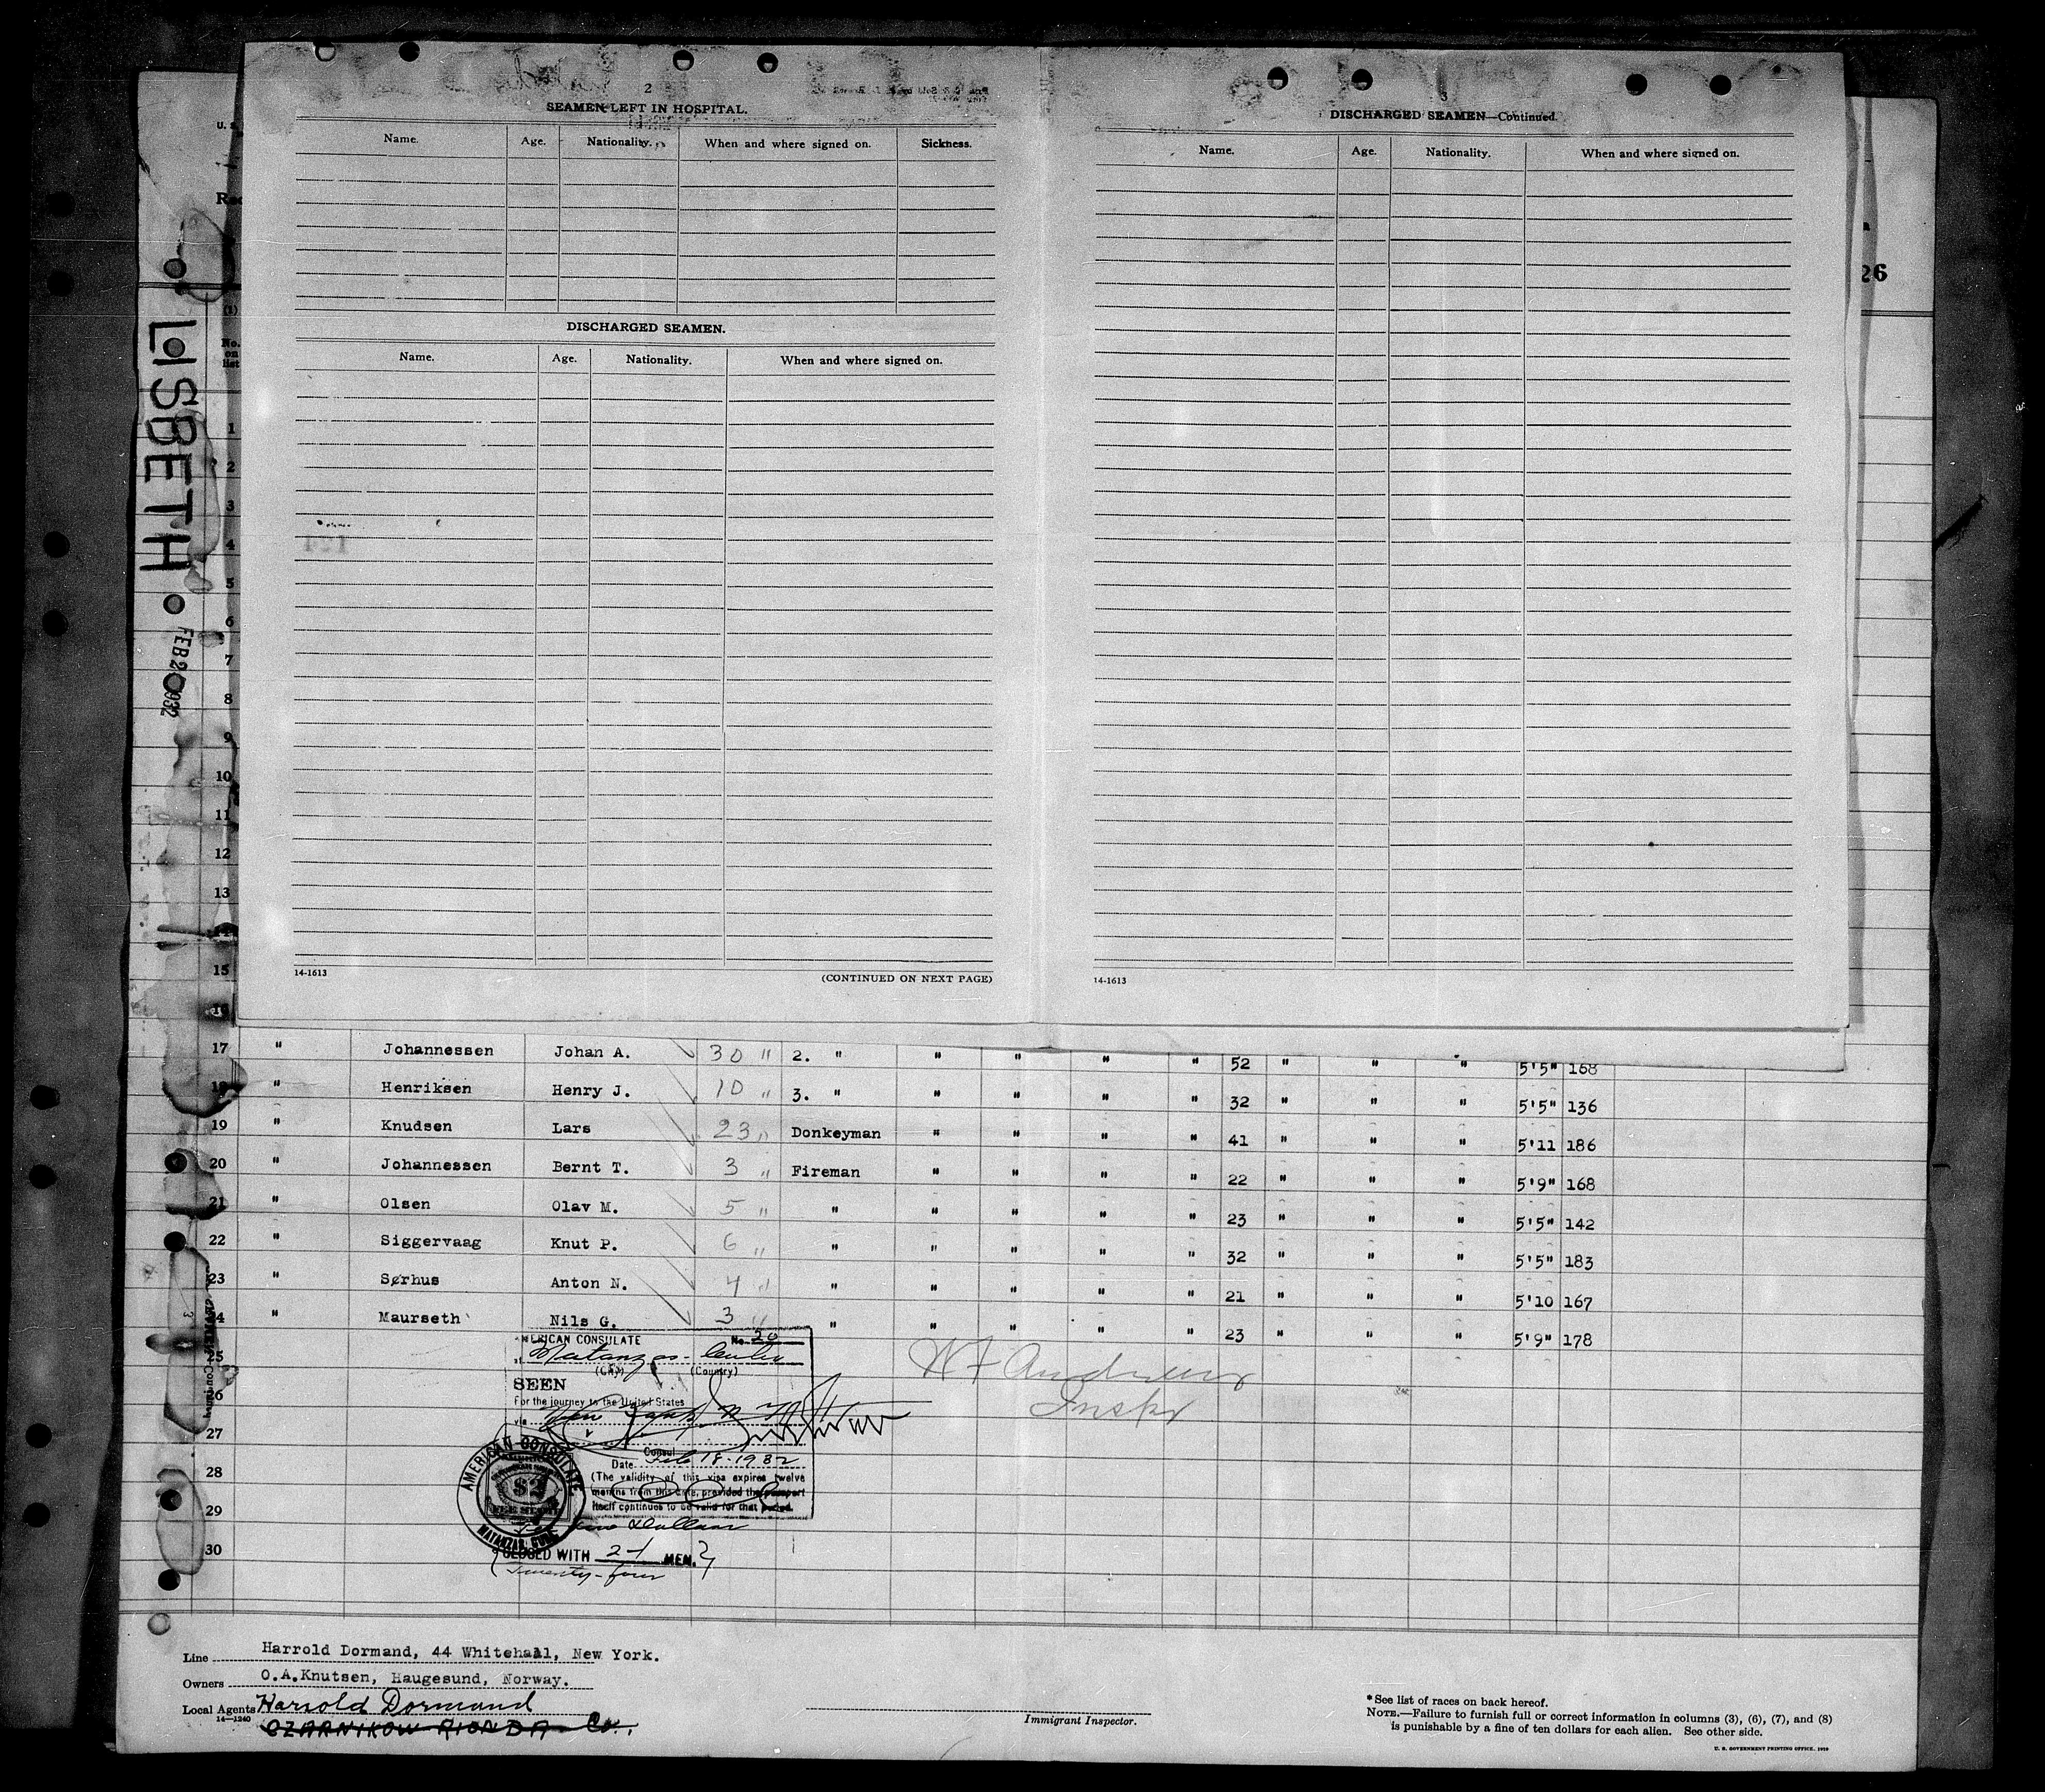 2
SEAMEN LEFT IN HOSPITAL.
Name. Age. Nationality. When and where signed on. Sickness.
DISCHARGED SEAMEN.
Name. Age. Nationality. When and where signed on.
14-1613 (CONTINUED ON NEXT PAGE)
3
DISCHARGED SEAMEN—Continued.
Name. Age. Nationality. When and where signed on.
14-1613
U. S.
(1)
No. on list
26
LISBETH
FEB 2 1932
1
2
3
4
5
6
7
8
9
10
11
12
13
14
15
16
17 " Johannessen Johan A. 30 " 2. " " " " " 52 " " " 5'5" 168
18 " Henriksen Henry J. 10 " 3. " " " " " 32 " " " 5'5" 136
19 " Knudsen Lars 23 " Donkeyman " " " " 41 " " " 5'11 186
20 " Johannessen Bernt T. 3 " Fireman " " " " 22 " " " 5'9" 168
21 " Olsen Olav M. 5 " " " " " " 23 " " " 5'5" 142
22 " Siggervaag Knut P. 6 " " " " " " 32 " " " 5'5" 183
23 " Sørhus Anton N. 4 " " " " " " 21 " " " 5'10 167
24 " Maurseth Nils G. 3 " " " " " " 23 " " " 5'9" 178
25
26
27
28
29
30
AMERICAN CONSULATE No. 20
at Matanzas - Cuba
(City) (Country)
SEEN
For the journey to the United States
via New York
Consul
Date Feb 18-1932
(The validity of this visa expires twelve
months from this date, provided the passport
itself continues to be valid for that period.
AMERICAN CONSULATE
MATANZAS, CUBA
$2
CLOSED WITH 24 MEN.
Twenty-four
W F Andrews
Inspr
Line Harrold Dormand, 44 Whitehall, New York.
Owners O.A.Knutsen, Haugesund, Norway.
Local Agents Harrold Dormand
14—1240
CZARNIKOW RIONDA Co.
Immigrant Inspector.
* See list of races on back hereof.
NOTE.—Failure to furnish full or correct information in columns (3), (6), (7), and (8)
is punishable by a fine of ten dollars for each alien. See other side.
U. S. GOVERNMENT PRINTING OFFICE, 1929